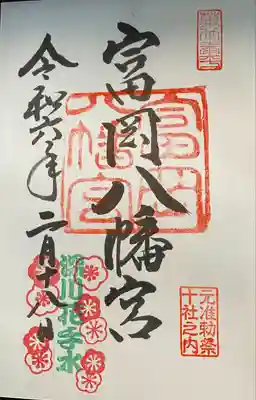 富岡八幡宮
令和六年二月十八日
深川花手水
元准勅祭
十社之内